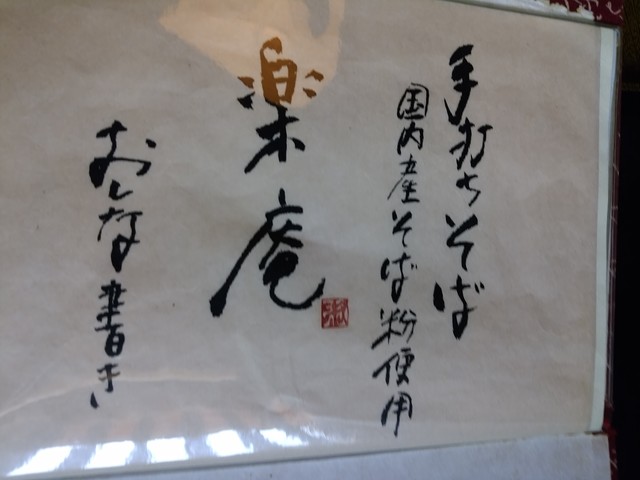 手打ちそば
国内産そば粉使用
楽庵
おしな書き